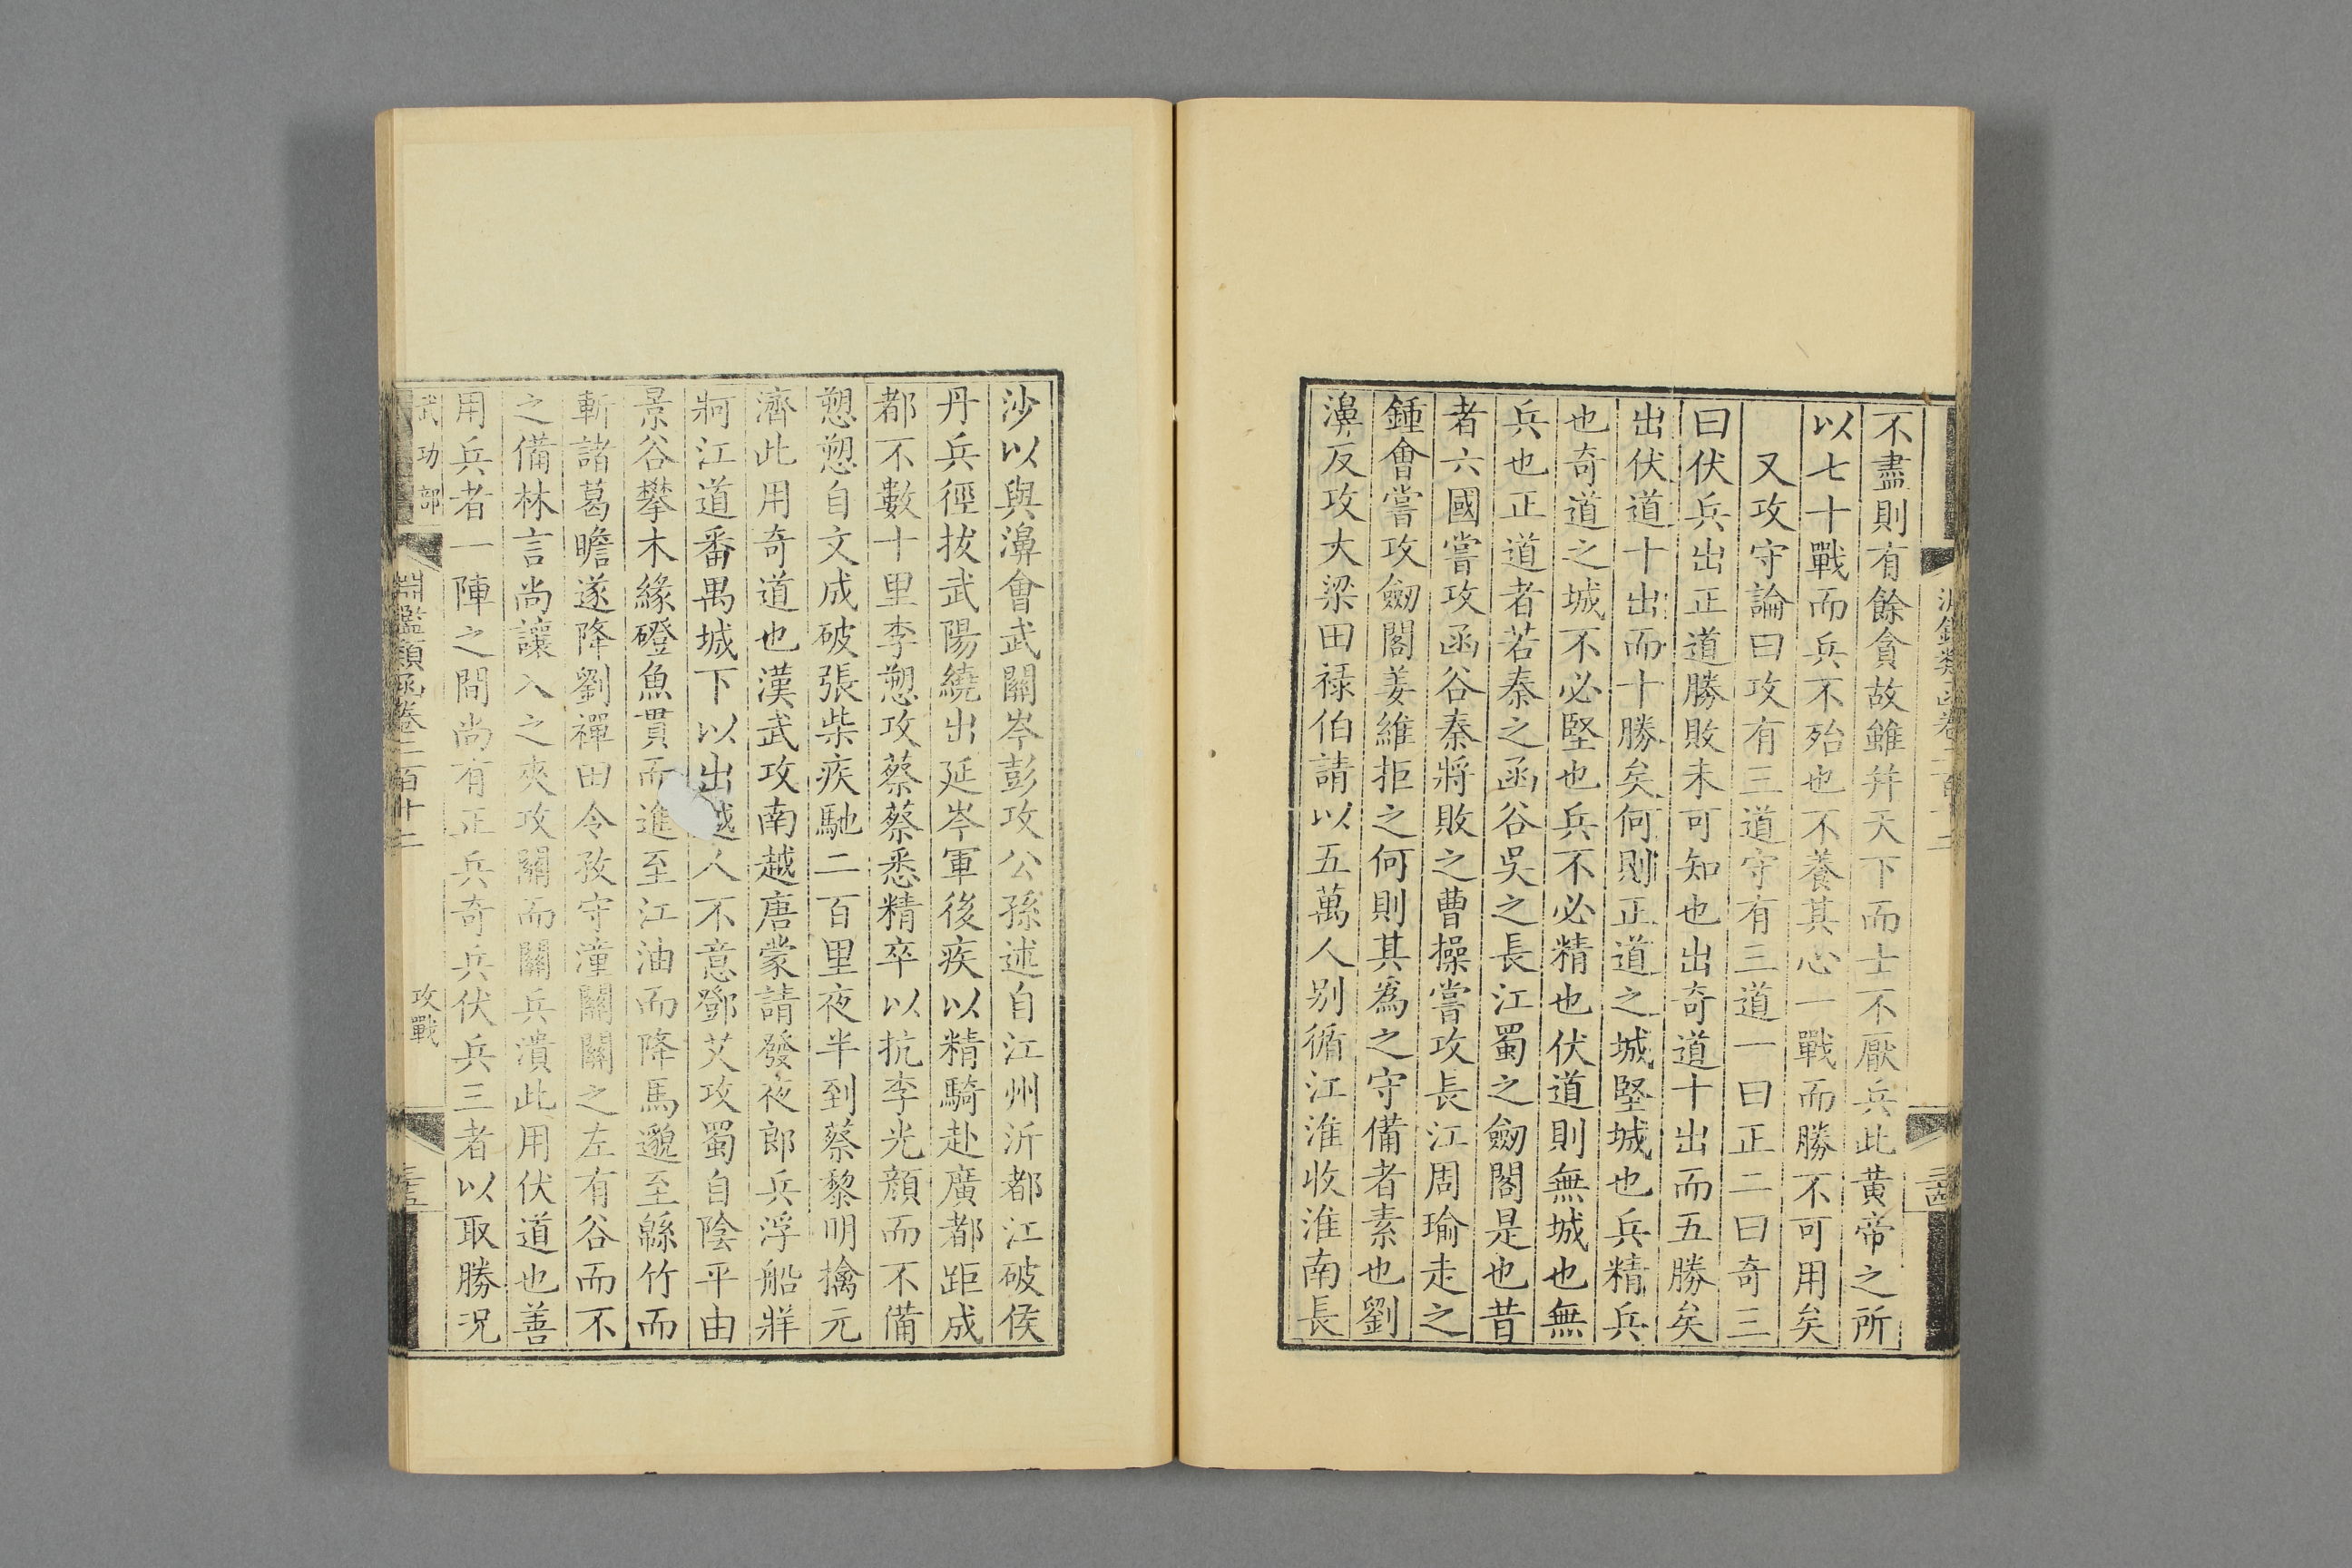 不盡則有餘貪故雖并天下而士不厭兵此黃帝之所
以七十戰而兵不殆也不養其心一戰而勝不可用矣
又攻守論曰攻有三道守有三道一曰正二曰奇三
曰伏兵出正道勝敗未可知也出奇道十出而五勝矣
出伏道十出而十勝矣何則正道之城堅城也兵精兵
也奇道之城不必堅也兵不必精也伏道則無城也無
兵也正道者若秦之函谷吳之長江蜀之劒閣是也昔
者六國嘗攻函谷秦將敗之曹操嘗攻長江周瑜走之
鍾會嘗攻劒閣姜維拒之何則其為之守備者素也劉
濞反攻大梁田祿伯請以五萬人别循江淮收淮南長
沙以與濞會武關岑彭攻公孫述自江州泝都江破侯
丹兵徑拔武陽繞出延岑軍後疾以精騎赴廣都距成
都不數十里李愬攻蔡蔡悉精卒以抗李光顔而不備
愬愬自文成破張柴疾馳二百里夜半到蔡黎明擒元
濟此用奇道也漢武攻南越唐蒙請發夜郎兵浮船牂
牁江道番禺城下以出越人不意鄧艾攻蜀自陰平由
景谷攀木緣磴魚貫而進至江油而降馬邈至緜竹而
斬諸葛瞻遂降劉禪田令孜守潼關關之左有谷而不
之備林言尚讓入之夾攻關而關兵潰此用伏道也善
用兵者一陣之間尚有正兵奇兵伏兵三者以取勝況
武功部
淵鑑類函卷二百十二
攻戰